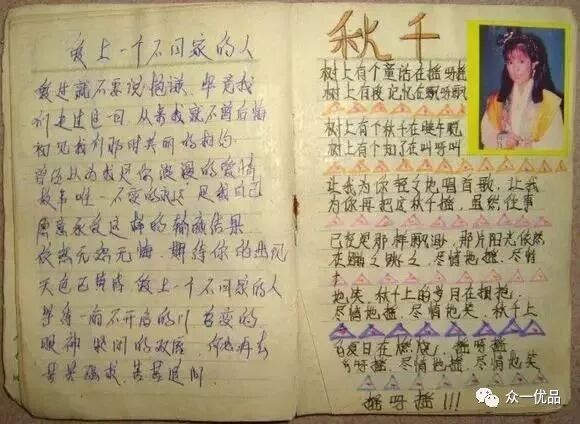 爱上一个不回家的人
爱过就不要说抱歉 毕竟我
们走过这一回 从来我就不曾后悔
初见我们那时美丽的相约
曾经以为我是你浪漫的爱情
故事 唯一不变的永远 是我自己
愿意承受这样的输赢结果
依然无怨无悔 期待你的出现
天色已黄昏 爱上一个不回家的人
等待一扇不开启的门 善变的
眼神 紧闭的双唇 何必再去
苦苦强求 苦苦追问
秋千
树上有个童话在摇呀摇
树上有段记忆在飘呀飘
树上有个秋千在唤午觉
树上有个知了在叫呀叫
让我为你轻轻地唱首歌，让我
为你再把这秋千摇，虽然往事
已经是那样飘渺，那片阳光依然
在跳之跳之，尽情地摇，尽情
地笑，秋千上的岁月在拥抱，
尽情地摇，尽情地笑，秋千上
的夏日在燃烧，摇呀摇
尽情地摇，尽情地笑
摇呀摇!!!
众一优品